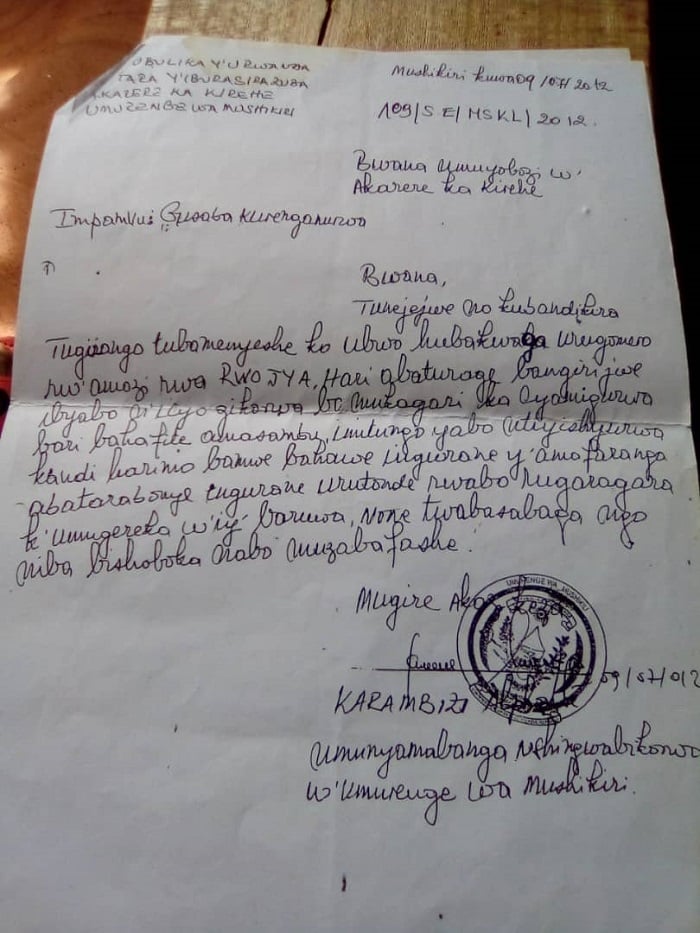 UBULIKA Y'U RWANDA
TARA Y'IBURASIRAZUBA
AKARERE KA KIREHE
UMURENGE WA MUSHIKIRI
Mushikiri kuwa 09/07/2012
109/SE/MSKL/2012.
Bwana umuyobozi w'
Akarere ka Kirehe
Impamvu: Gusaba kurenganurwa
Bwana,
Tunejejwe no kubandikira
Tugirango tubamenyeshe ko ubwo hubakwaga urugomero
rw'amazi rwa, Hari abaturage bangirijwe
ibyabo n'ibyo bikorwa bo mukagari ka
bari bahafite amasambu, imitungo yabo ntiyishyurwa
kandi harimo bamwe bahawe ingurane y'amafaranga
abatarabonye ingurane urutonde rwabo rugaragara
k'umugereka w'iyi baruwa, None twabasabaga ngo
niba bishoboka nabo muzabafashe.
Mugire Akazi keza
UMURENGE WA MUSHIKIRI
09/07/012
KARAMBIZI
Umunyamabanga Nshingwabikorwa
w'Umurenge wa Mushikiri.